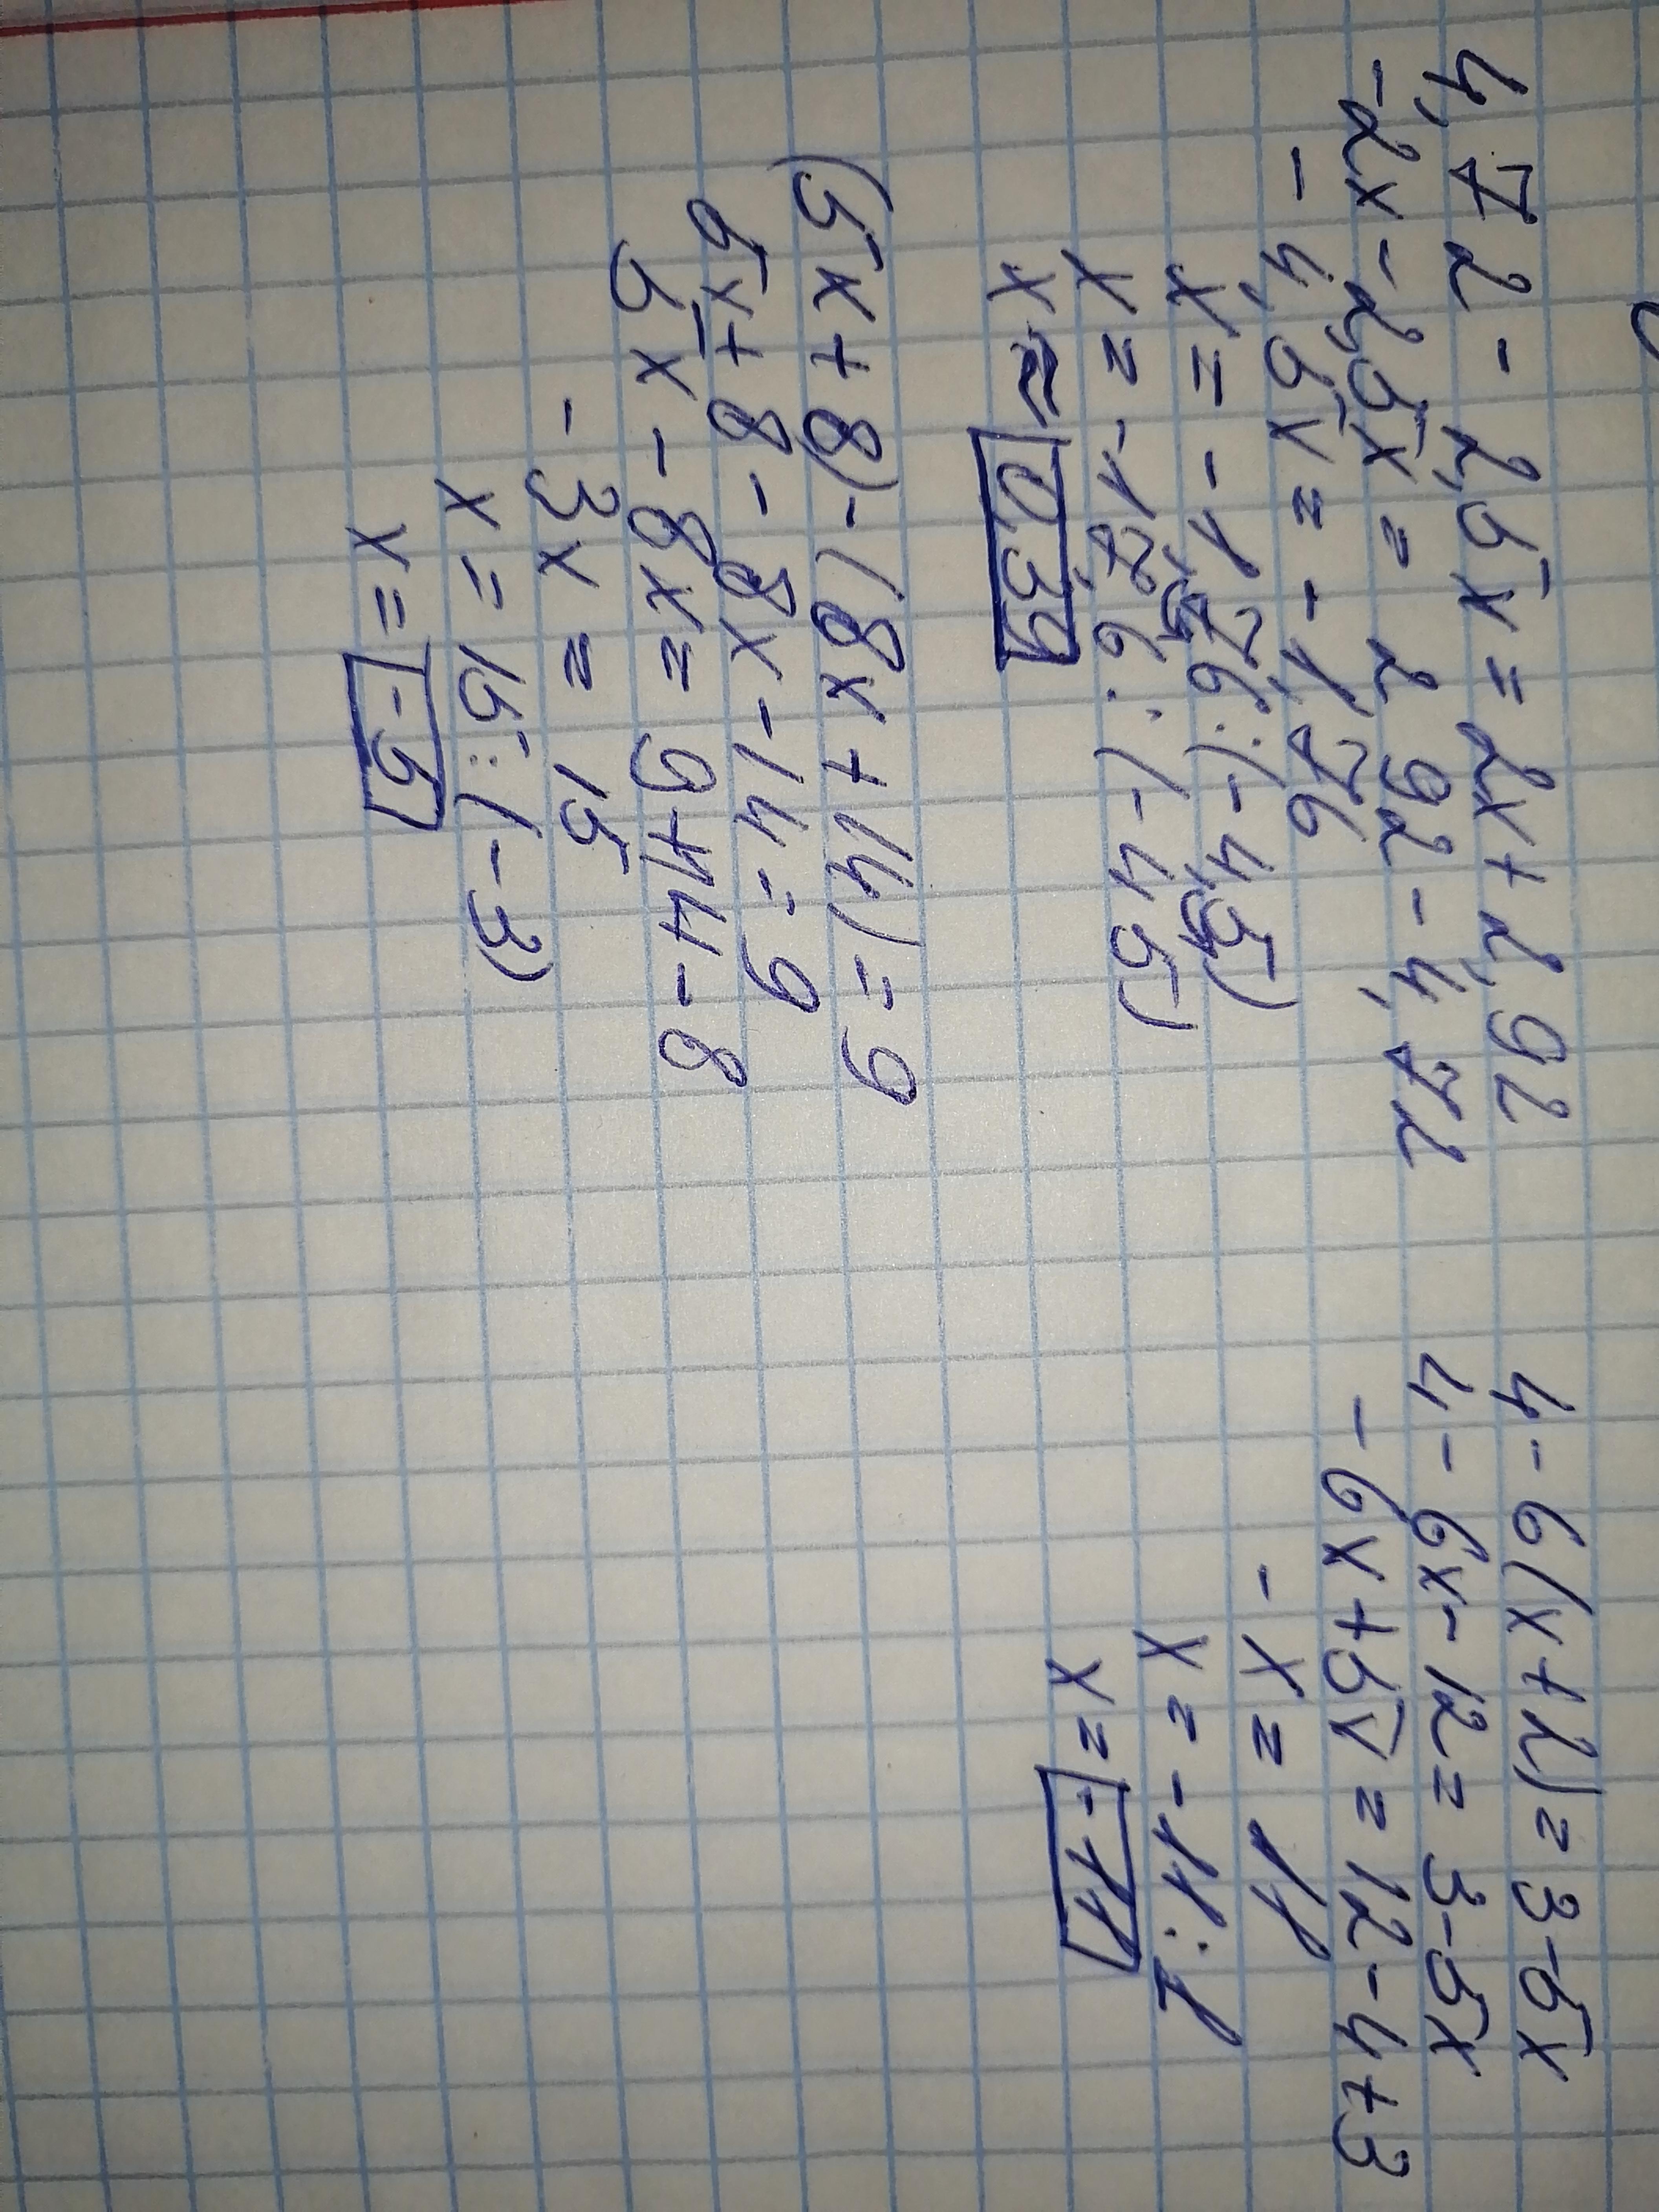 4,72 - 2,5x = 2x + 2,92
-2x - 2,5x = 2 92 - 4,72
- 4,5x = - 1,76
x = - 1,76 : (-4,5)
x = - 176 : (-45)
x ≈ 0,39
(5x + 8) - (8x + 14) = 9
5x + 8 - 8x - 14 = 9
5x - 8x = 9 + 14 - 8
-3x = 15
x = 15 : (-3)
x = -5
4 - 6(x + 2) = 3 - 5x
4 - 6x - 12 = 3 - 5x
-6x + 5x = 12 - 4 + 3
-x = 11
x = -11 : 1
x = -11